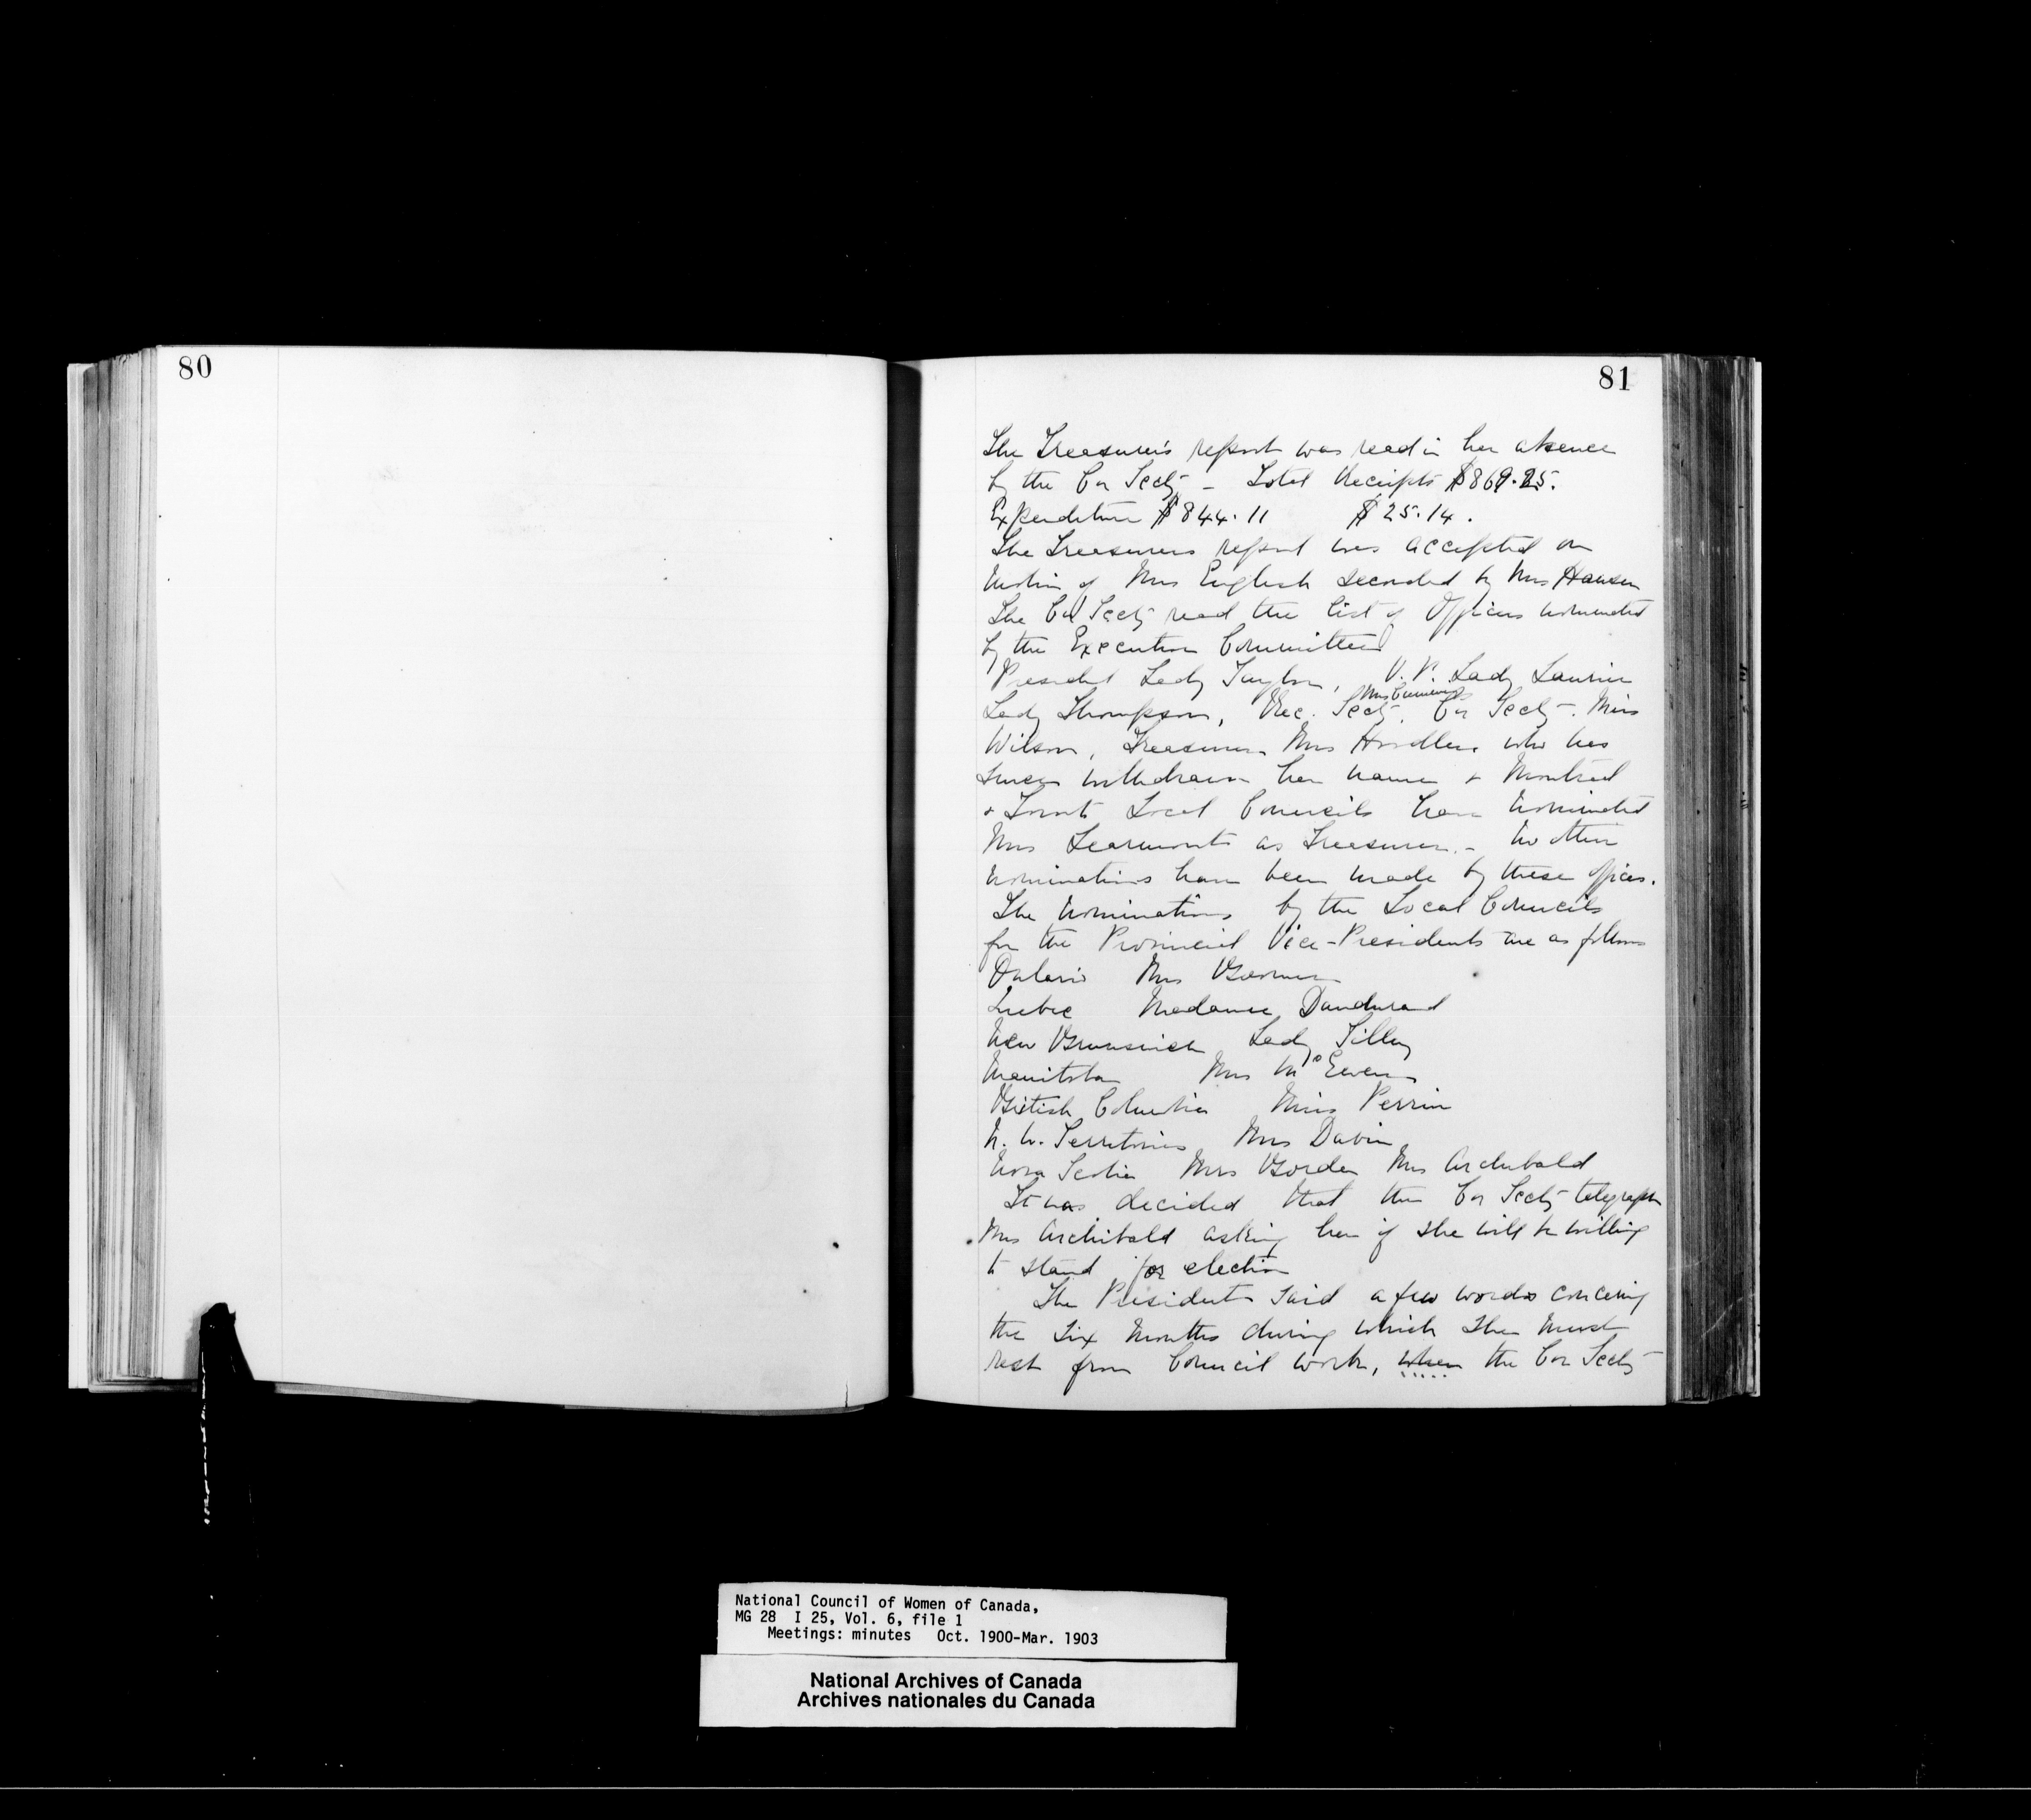 80
81
The Treasurer's report was read in her absence
by the Cor Secty - Total Receipts $869.25.
Expenditure $844.11 $25.14.
The Treasurers report was accepted on
motion of Mrs English seconded by Mrs
The Cor Secty read the list of Officers nominated
by the Executive Committee
President Lady Taylor, V.P. Lady Laurier
Mrs Cummings
Lady Thompson, Rec. Secty. Cor Secty - Miss
Wilson, Treasurer Mrs Hoodless who has
since withdrawn her name & Montreal
& Local Councils have nominated
Mrs Learmont as Treasurer. - No other
nominations have been made by these offices.
The nominations by the Local Councils
for the Provincial Vice-Presidents are as follows
Ontario Mrs
Quebec Madame Dandurand
New Brunswick Lady Tilley
Manitoba Mrs McEwen
British Columbia Miss Perrin
N. W. Territories Mrs Davin
Nova Scotia Mrs Borden Mrs Archibald
It was decided that the Cor Secty telegraph
Mrs Archibald asking her if she will be willing
to stand for election
The President said a few words concering
the six months during which she must
rest from Council work, when the Cor Secty
National Council of Women of Canada,
MG 28 I 25, Vol. 6, file 1
Meetings: minutes Oct. 1900-Mar. 1903
National Archives of Canada
Archives nationales du Canada